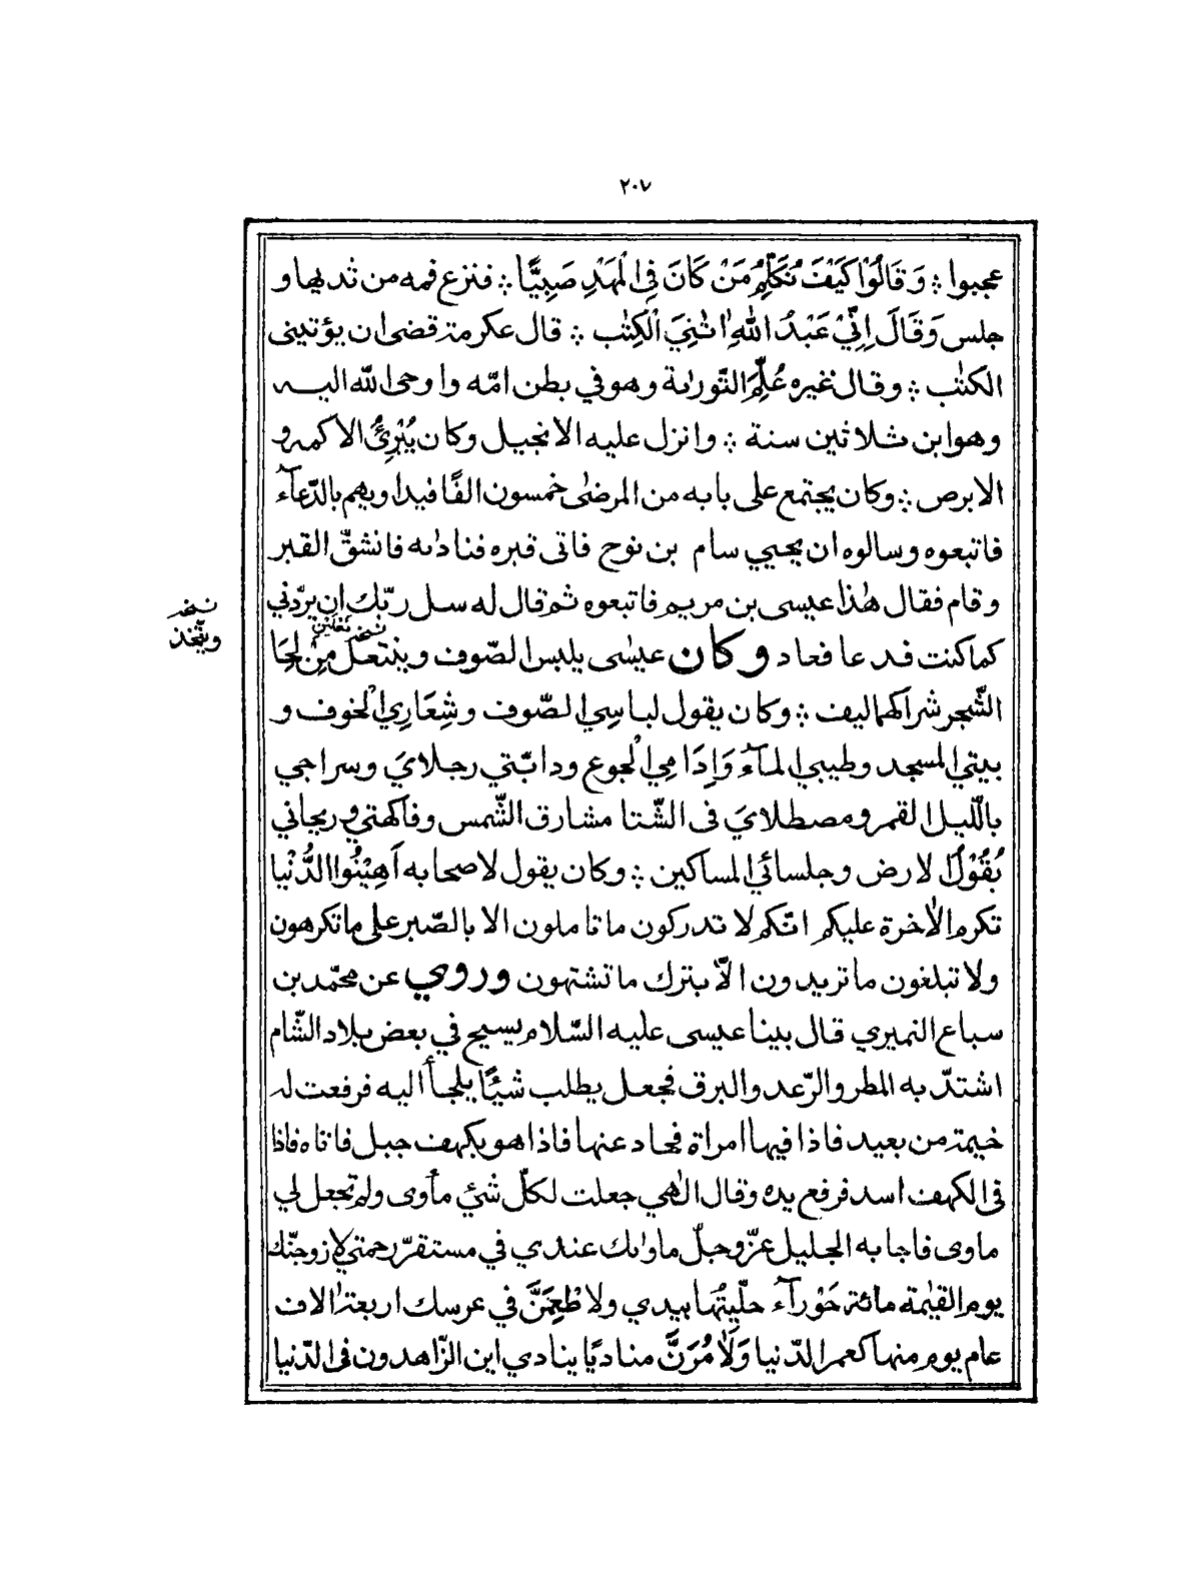 ٢٠٧
عجبوا ؞ وَقَالُوْا كَيْفَ نُكَلِّمُ مَنْ كَانَ فِي الْمَهْدِ صَبِيًّا ؞ فنزع فمه من ثديها و
جلس وَقَالَ اِنِّيْ عَبْدُ اللّٰهِ اٰتٰنِيَ الْكِتٰب ؞ قال عكرمة قضى ان يؤتينى
الكتٰب ؞ وقال غيره عُلِّمَ التّورىٰة وهو في بطن امّه واوحى اللّه اليه
وهو ابن ثلاثين سنة ؞ وانزل عليه الانجيل وكان يُبْرِئُ الاكمه و
الابرص ؞ وكان يجتمع على بابه من المرضىٰ خمسون الفًا فيداويهم بالدّعآء
فاتبعوه وسالوه ان يحيي سام بن نوح فاتى قبره فنادىٰه فانشقّ القبر
وقام فقال هٰذا عيسى بن مريم فاتبعوه ثم قال له سل ربّك ان يردّني
كما كنت فدعا فعاد وكان عيسٰى يلبس الصّوف وينتعل مِنْ لِحَا
نسخه نعلين
نسخه
ويتّخذ
الشّجر شراكهما ليف ؞ وكان يقول لباسِي الصّوف وشِعَارِي الْخوف و
بيتي المسجد وطيبي المآء وَاِدَامِي الْجوع ودابّتي رجلايَ وسراجي
باللّيل القمر ومصطلايَ فى الشّتا مشارق الشّمس وفاكهتي وريحاني
بُقُوْلُ الارض وجلسائي المساكين ؞ وكان يقول لاصحابه اَهِيْنُوا الدُّنْيا
تكرم الاٰخرة عليكم انّكم لا تدركون ما تاملون الا بالصّبر على ما تكرهون
ولا تبلغون ما تريدون الّا بترك ما تشتهون وروي عن محمّد بن
سباع النميري قال بينا عيسى عليه السّلام يسيح في بعض بلاد الشّام
اشتدّ به المطر والرّعد والبرق فجعل يطلب شيْئًا يلجأ اليه فرفعت له
خيمة من بعيد فاذا فيها امراة فحاد عنها فاذا هو بكهف جبل فاتاه فاذا
فى الكهف اسد فرفع يده وقال الٰهي جعلت لكلّ شئ مأوى ولم تجعل لي
ماوى فاجابه الجليل عزّ وجلّ ماوٰىك عندي في مستقرّ رحمتي لازوجنّك
يوم القيٰمة مائة حَوْرآء خلّيتُها بيدي ولاطْعِمَنَّ في عرسك اربعة اٰلاف
عام يوم منها كعمر الدّنيا وَلَاٰمُرَنَّ مناديًا ينادي اين الزّاهدون فى الدّنيا